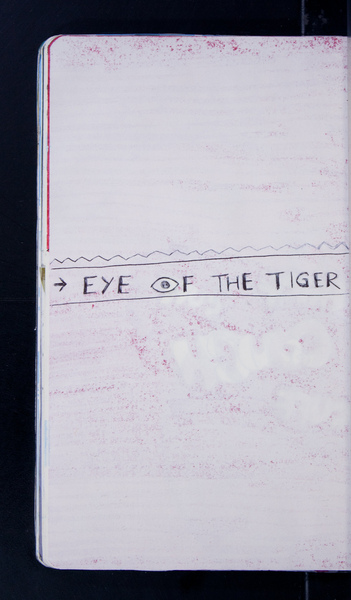 → EYE OF THE TIGER